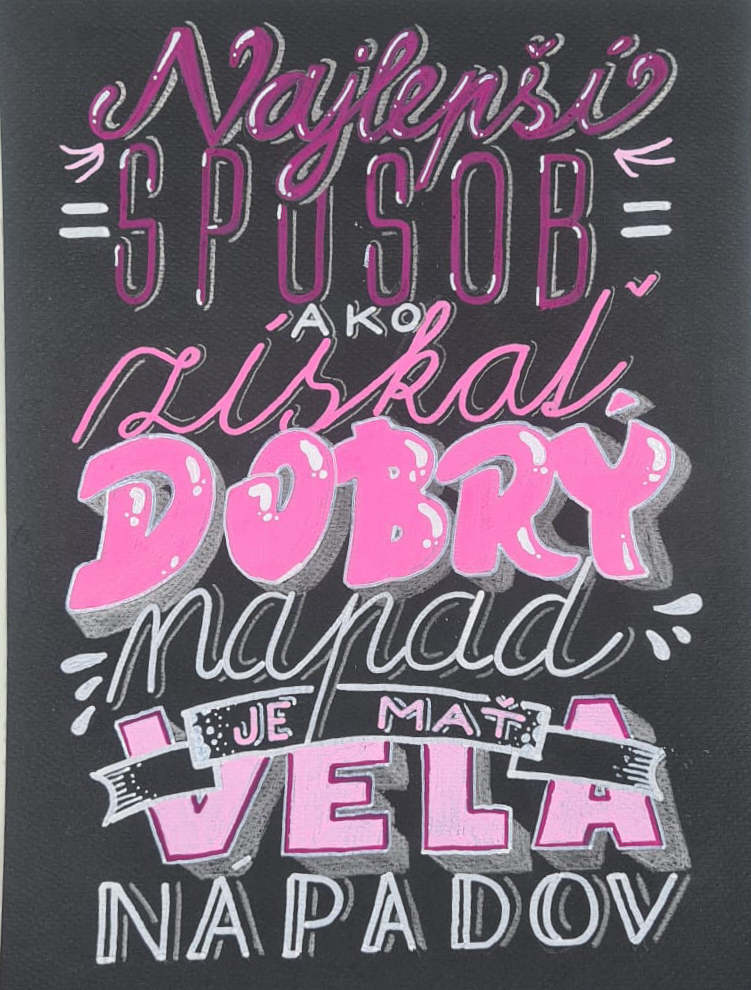 Najlepší
SPÔSOB
AKO
získať
DOBRÝ
nápad
JE MAŤ
VEĽA
NÁPADOV